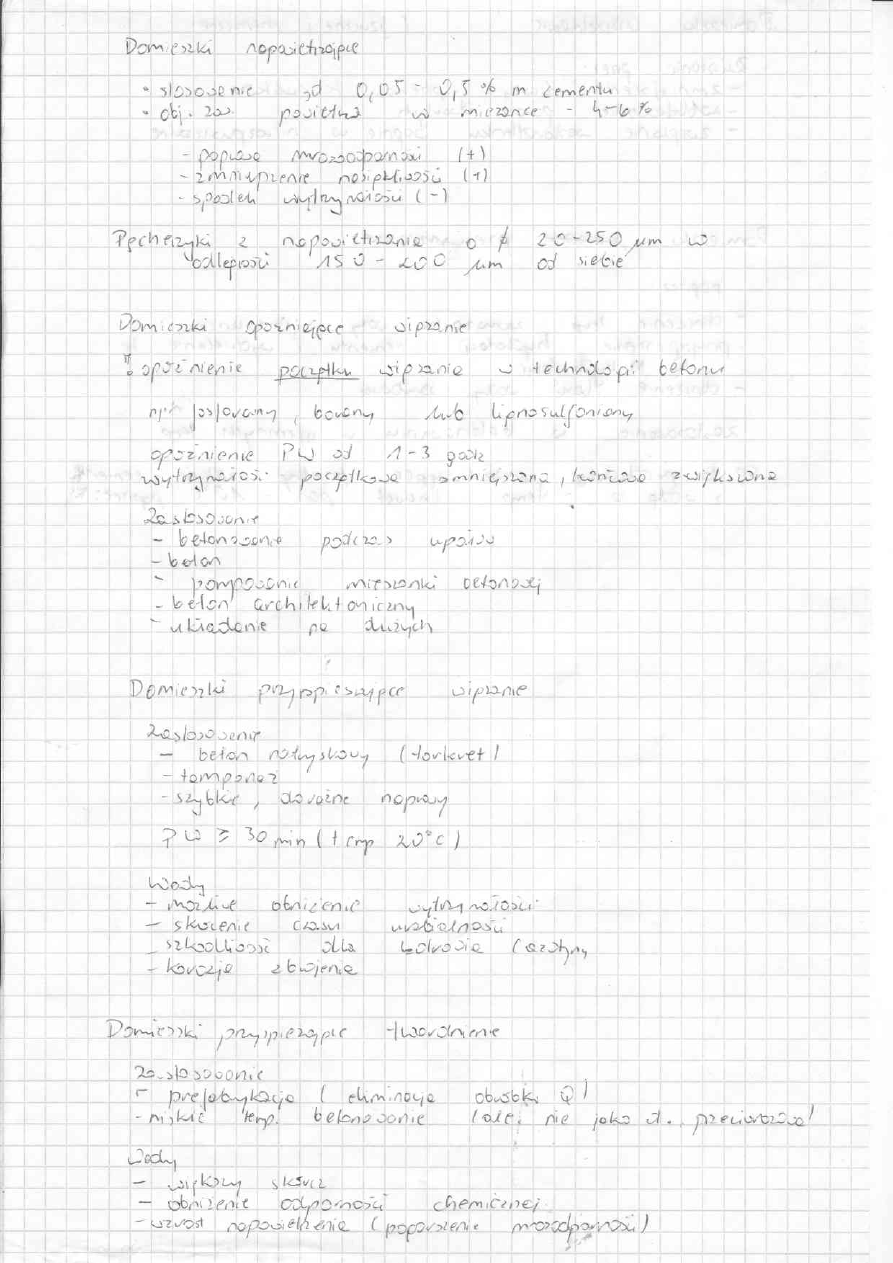 Domieszki napowietrzające
• stosowanie od 0,05 - 0,5 % m cementu
• obj. zaw. powietrza w mieszance - 4-6 %
- poprawa mrozoodporności (+)
- zmniejszenie nasiąkliwości (+)
- spadek wytrzymałości (-)
Pęcherzyki z napowietrzania o ϕ 20-250 μm w
odległości 150 - 200 μm od siebie
Domieszki opóźniające wiązanie
! opóźnienie początku wiązania w technologii betonu
np. fosforany, borany lub lignosulfoniany
opóźnienie PW od 1-3 godz
wytrzymałość początkowa zmniejszona, końcowa zwiększona
Zastosowanie
- betonowanie podczas upałów
- beton
- pompowanie mieszanki betonowej
- beton architektoniczny
- układanie na dużych
Domieszki przyspieszające wiązanie
Zastosowanie
- beton natryskowy (torkret)
- tamponaż
- szybkie, doraźne naprawy
PW ≥ 30 min (temp 20°C)
Wady
- możliwe obniżenie wytrzymałości
- skrócenie czasu urabialności
- szkodliwość dla zdrowia (azotyny
- korozja zbrojenia
Domieszki przyspieszające twardnienie
Zastosowanie
- prefabrykacja (eliminacja obróbki Q)
- niskie temp. betonowania (ale nie jako d. przeciwmrozowa)
Wady
- większy skurcz
- obniżenie odporności chemicznej
- wzrost napowietrzenia (pogorszenie mrozoodporności)